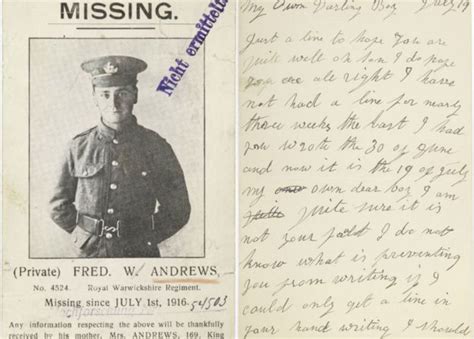 MISSING.
Nicht ermittelt
(Private) FRED. W. ANDREWS,
No. 4524. Royal Warwickshire Regiment.
Missing since JULY 1st, 1916.
54503
Any information respecting the above will be thankfully
received by his mother, Mrs. ANDREWS, 169, King
My Own Darling Boy July 19
Just a line to hope you are
quite well oh son I do hope
you are all right I have
not had a line for nearly
three weeks the last I had
you wrote the 30 of June
and now it is the 19 of July
my own own dear boy I am
quite quite sure it is
not your fault I do not
know what is preventing
you from writing if I
could only get a line in
your hand writing I should